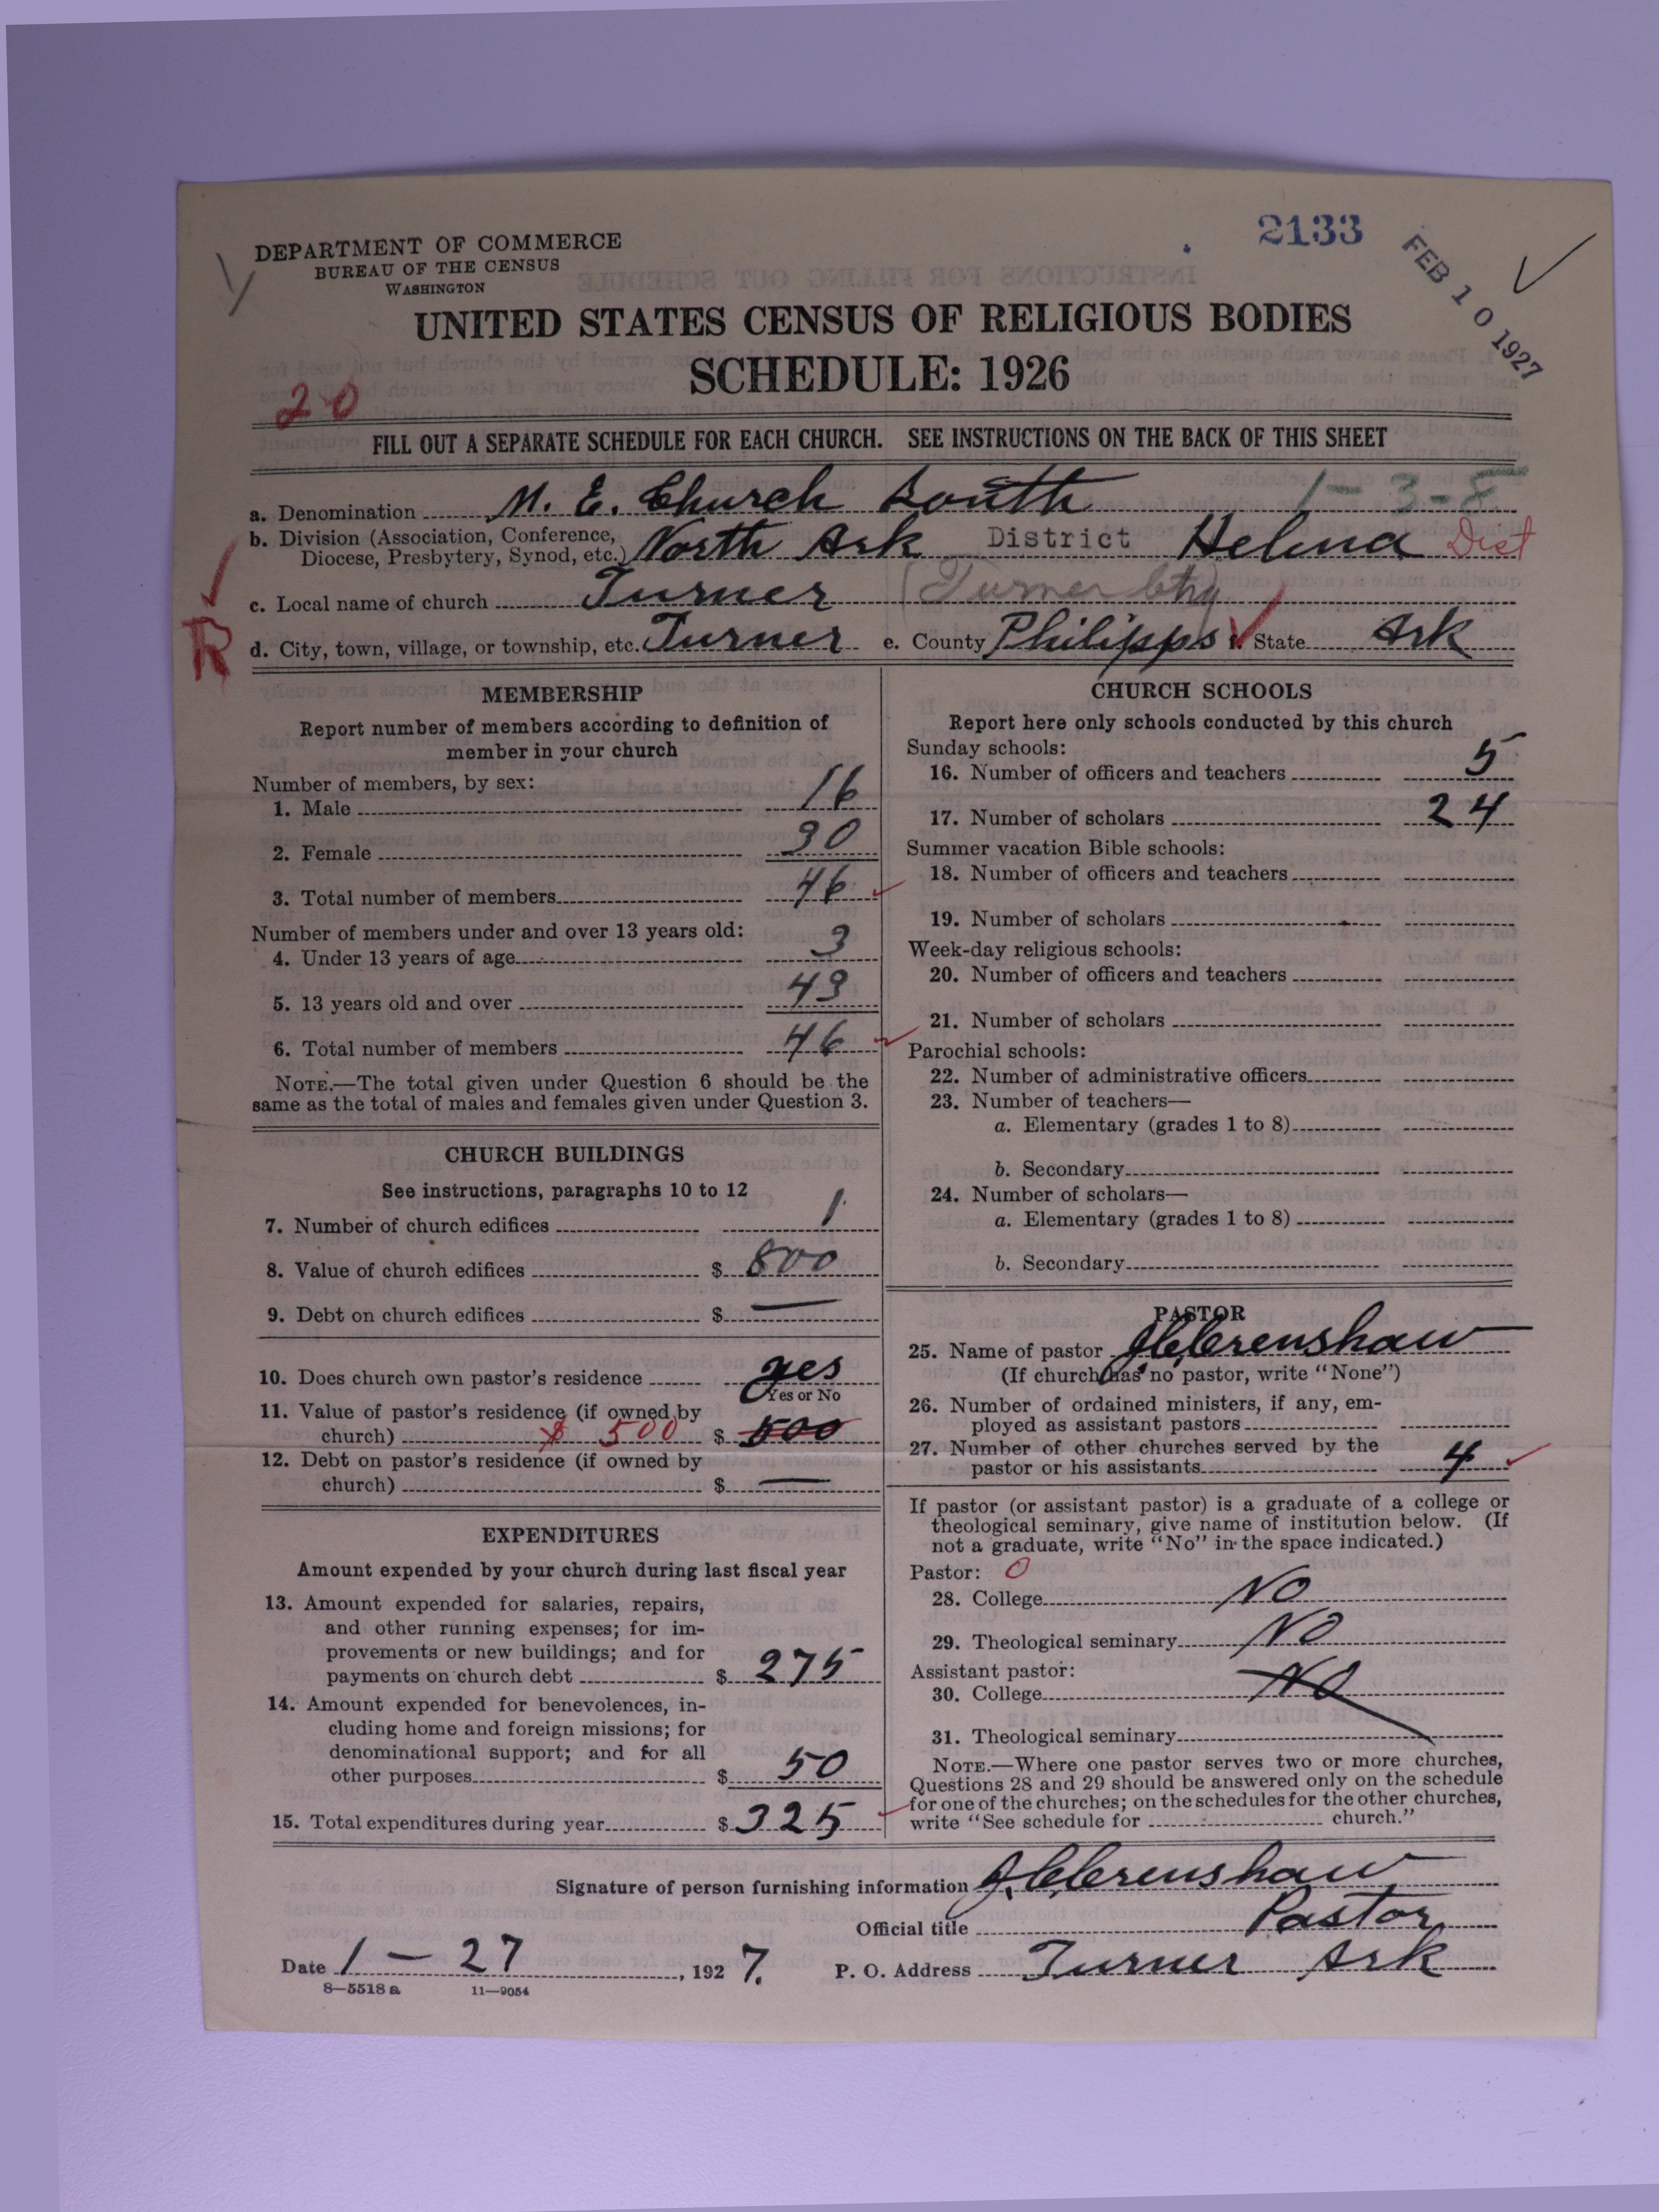 2133
FEB 10 1927
DEPARTMENT OF COMMERCE
BUREAU OF THE CENSUS
WASHINGTON
UNITED STATES CENSUS OF RELIGIOUS BODIES
SCHEDULE: 1926
20
FILL OUT A SEPARATE SCHEDULE FOR EACH CHURCH. SEE INSTRUCTIONS ON THE BACK OF THIS SHEET
a. Denomination M. E. Church South 1-3-8
b. Division (Association, Conference, Diocese, Presbytery, Synod, etc.) North Ark District Helena Dist
c. Local name of church Turner (Turner
R
d. City, town, village, or township, etc. Turner e. County Philipps f. State Ark
MEMBERSHIP
Report number of members according to definition of
member in your church
Number of members, by sex:
1. Male 16
2. Female 30
3. Total number of members 46
Number of members under and over 13 years old:
4. Under 13 years of age 3
5. 13 years old and over 43
6. Total number of members 46
NOTE.—The total given under Question 6 should be the
same as the total of males and females given under Question 3.
CHURCH BUILDINGS
See instructions, paragraphs 10 to 12
7. Number of church edifices 1
8. Value of church edifices $ 800
9. Debt on church edifices $ —
10. Does church own pastor's residence yes
Yes or No
11. Value of pastor's residence (if owned by
church) $ 500 $ 500
12. Debt on pastor's residence (if owned by
church) $ —
EXPENDITURES
Amount expended by your church during last fiscal year
13. Amount expended for salaries, repairs,
and other running expenses; for im-
provements or new buildings; and for
payments on church debt $ 275
14. Amount expended for benevolences, in-
cluding home and foreign missions; for
denominational support; and for all
other purposes $ 50
15. Total expenditures during year $ 325
CHURCH SCHOOLS
Report here only schools conducted by this church
Sunday schools:
16. Number of officers and teachers 5
17. Number of scholars 24
Summer vacation Bible schools:
18. Number of officers and teachers
19. Number of scholars
Week-day religious schools:
20. Number of officers and teachers
21. Number of scholars
Parochial schools:
22. Number of administrative officers
23. Number of teachers—
a. Elementary (grades 1 to 8)
b. Secondary
24. Number of scholars—
a. Elementary (grades 1 to 8)
b. Secondary
PASTOR
25. Name of pastor J C Crenshaw
(If church has no pastor, write "None")
26. Number of ordained ministers, if any, em-
ployed as assistant pastors
27. Number of other churches served by the
pastor or his assistants 4
If pastor (or assistant pastor) is a graduate of a college or
theological seminary, give name of institution below. (If
not a graduate, write "No" in the space indicated.)
Pastor: 0
28. College No
29. Theological seminary No
Assistant pastor:
30. College No
31. Theological seminary
NOTE.—Where one pastor serves two or more churches,
Questions 28 and 29 should be answered only on the schedule
for one of the churches; on the schedules for the other churches,
write "See schedule for church."
Signature of person furnishing information J. C. Crenshaw
Official title Pastor
Date 1 - 27, 1927. P. O. Address Turner Ark
8—5518 a 11—9054